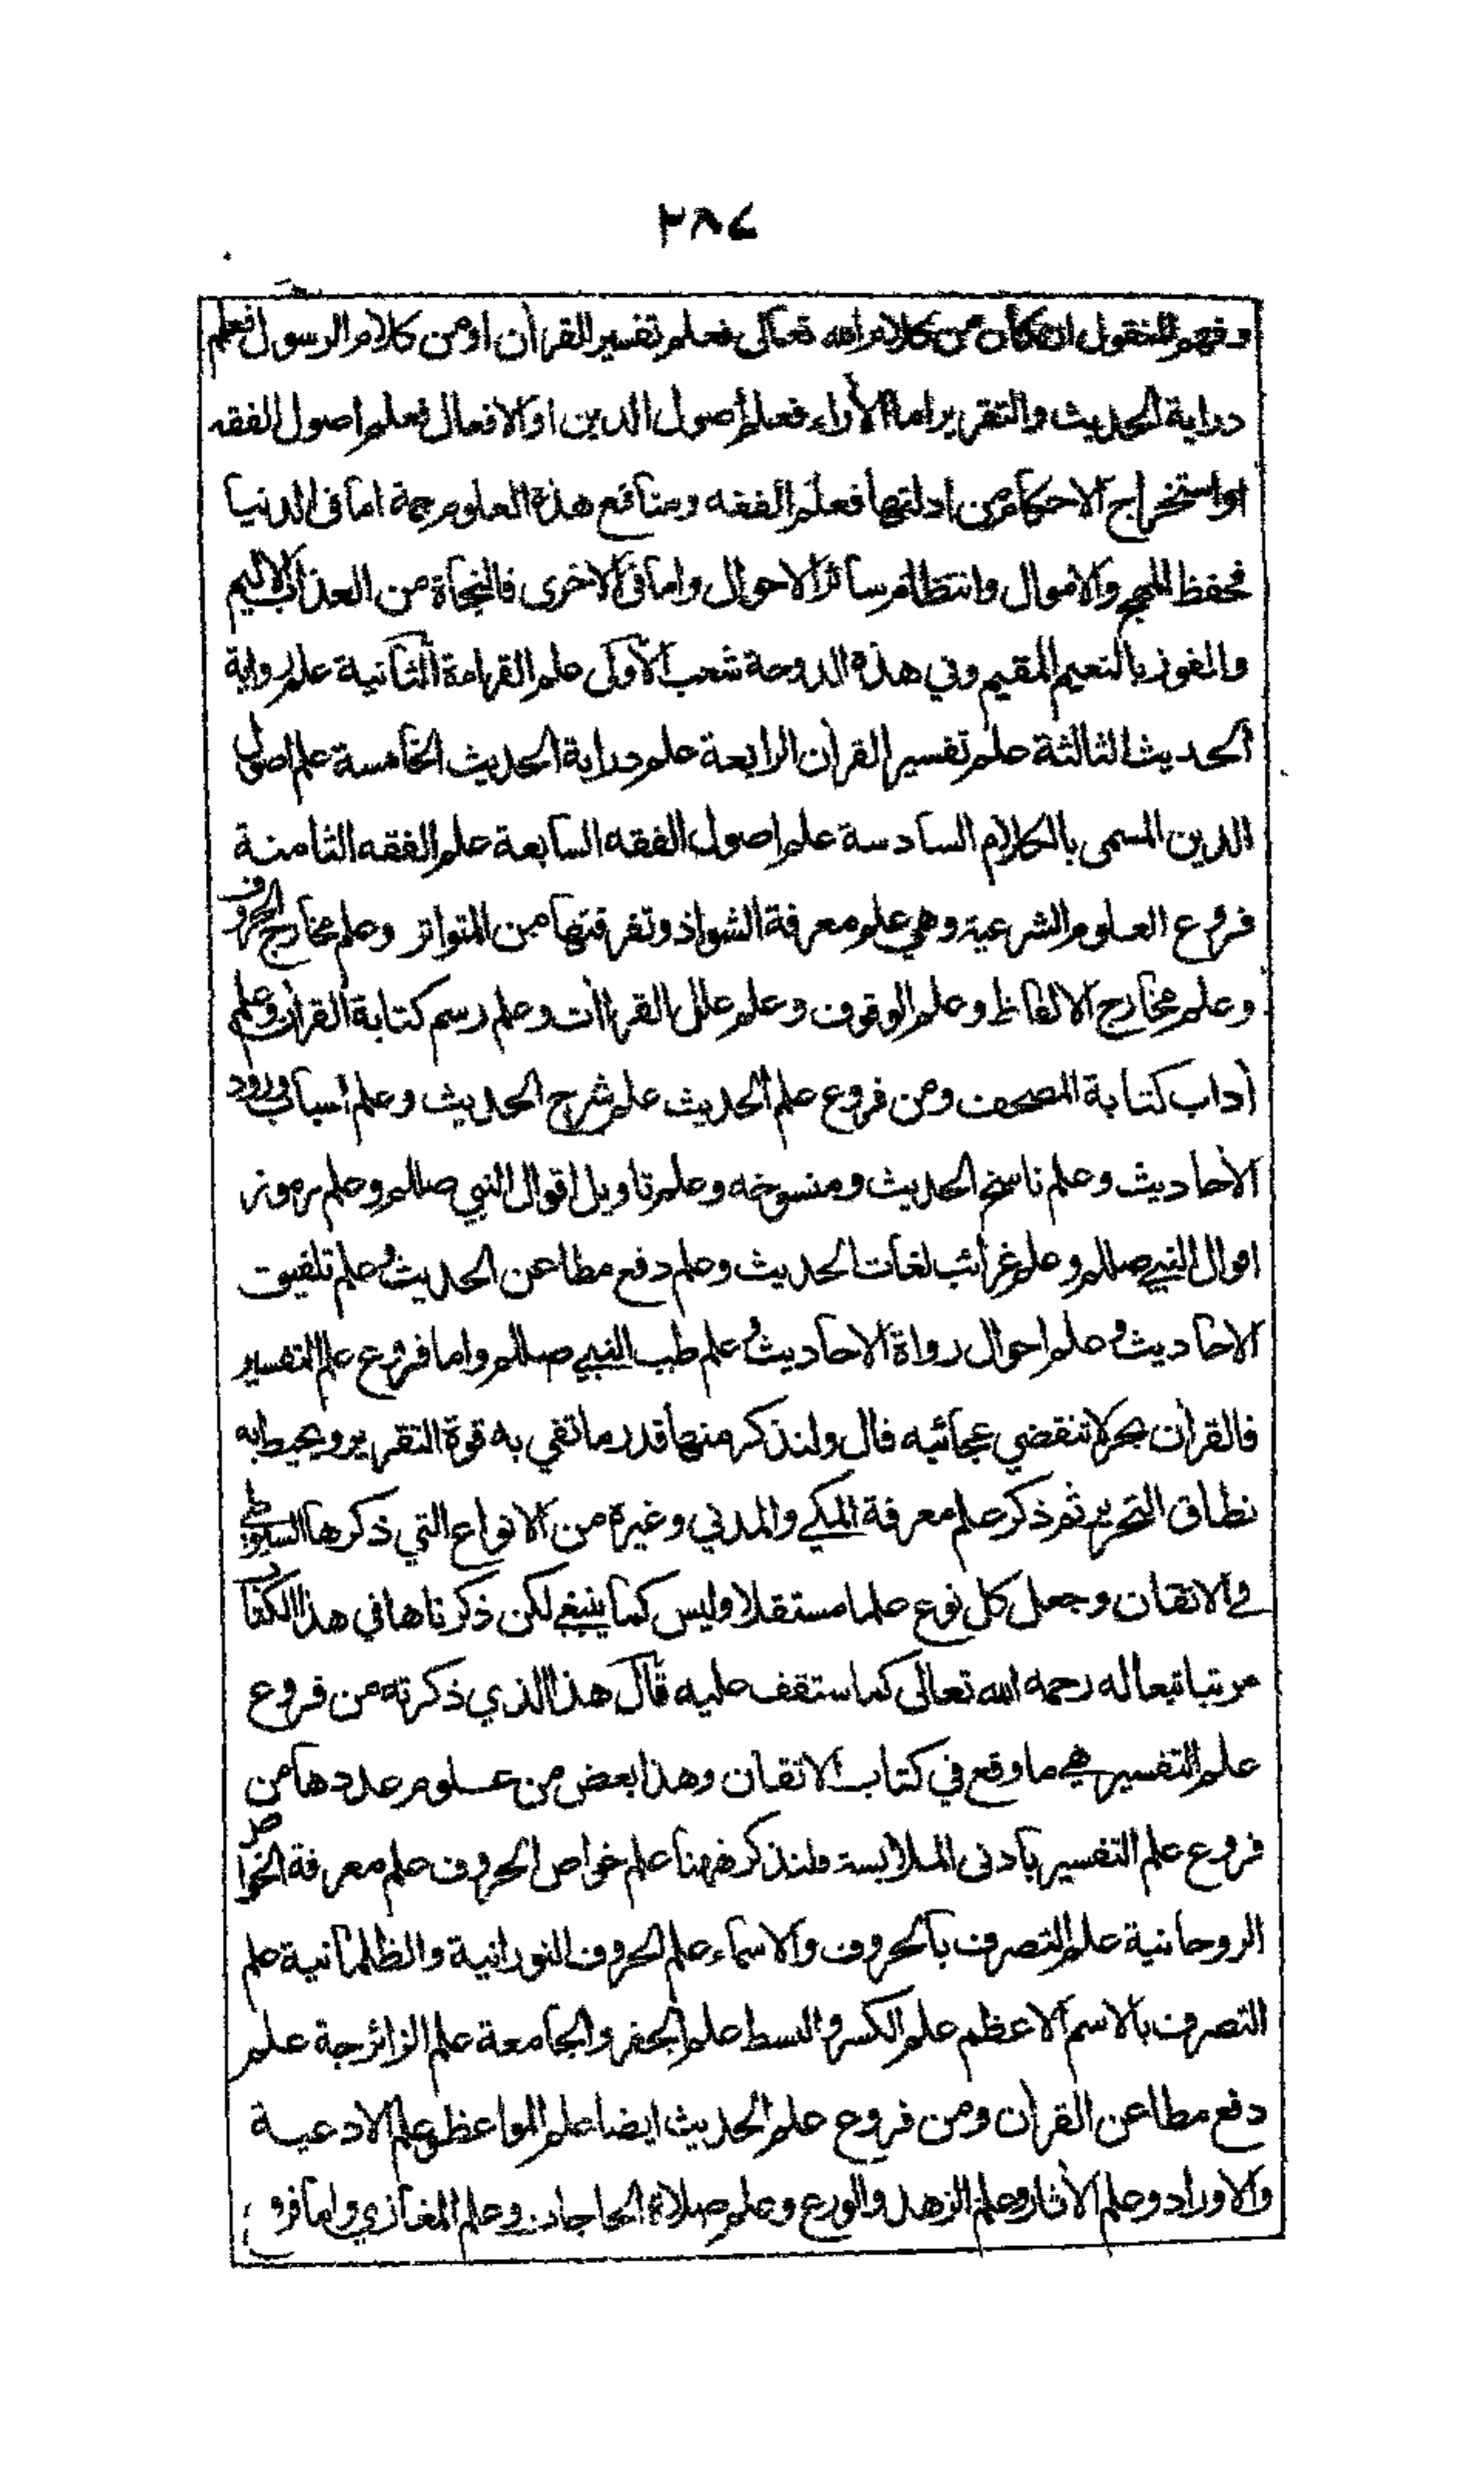 ٣٨٤
وفهم المنقول ان كان من كلام الله تعالى فعلم تفسير القرأن او من كلام الرسول فعلم
دراية الحديث والتقرير اما الأراء فعلم أصول الدين او الافعال فعلم اصول الفقه
او استخراج الاحكام من ادلتها فعلم الفقه ومنافع هذة العلوم جمة اما فى الدنيا
فحفظ المهج والاموال وانتظام سائر الاحوال واما فى الاخرى فالنجاة من العذاب الاليم
والفوز بالنعيم المقيم وفي هذة الدوحة شعب الأولى علم القراءة الثانية علم رواية
الحديث الثالثة علم تفسير القران الرابعة علم دراية الحديث الخامسة علم اصول
الدين المسمى بالكلام السادسة علم اصول الفقه السابعة علم الفقه الثامنة
فروع العلوم الشرعية وهي علم معرفة الشواذ وتفرقتها من المتواتر وعلم مخارج الحروف
وعلم مخارج الالفاظ وعلم الوقوف وعلم علل القراأت وعلم رسم كتابة القرأن وعلم
أداب كتابة المصحف ومن فروع علم الحديث علم شرح الحديث وعلم اسباب ورود
الأحاديث وعلم ناسخ الحديث ومنسوخه وعلم تاويل اقوال النبي صللم وعلم رموز
اقوال النبي صللم وعلم غرائب لغات الحديث وعلم دفع مطاعن الحديث وعلم تلفيق
الاحاديث وعلم احوال رواة الاحاديث وعلم طب النبي صللم واما فروع علم التفسير
فالقرأن بحر لا تنقضي عجائبه قال ولنذكر منها قدر ما تفي به قوة التقرير ويحيط به
نطاق التحرير ثم ذكر علم معرفة المكي والمدني وغيرة من الانواع التي ذكرها السيوطي
في الاتقان وجعل كل نوع علما مستقلا وليس كما ينبغي لكن ذكرناها في هذا الكتاب
مرتبا تبعا له رحمه الله تعالى كما ستقف عليه قال هذا الذي ذكرته من فروع
علم التفسير هي ما وقع في كتاب الاتقان وهذا بعض من علوم عددها من
فروع علم التفسير بأدنى الملابسة ولنذكر ههنا علم خواص الحروف علم معرفة الخواص
الروحانية علم التصرف بالحروف والاسماء علم الحروف النورانية والظلمانية علم
التصرف بالاسم الاعظم علم الكسر والبسط علم الجفر والجامعة علم الزائرجة علم
دفع مطاعن القرأن ومن فروع علم الحديث ايضا علم المواعظ وعلم الادعية
والاوراد وعلم الأثار وعلم الزهد والورع وعلم صلاة الحاجات وعلم المغازي واما فروع